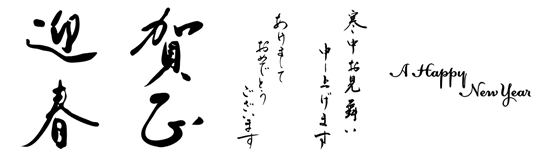 迎春
賀正
あけまして
おめでとう
ございます
寒中お見舞い
申し上げます
A Happy
New Year